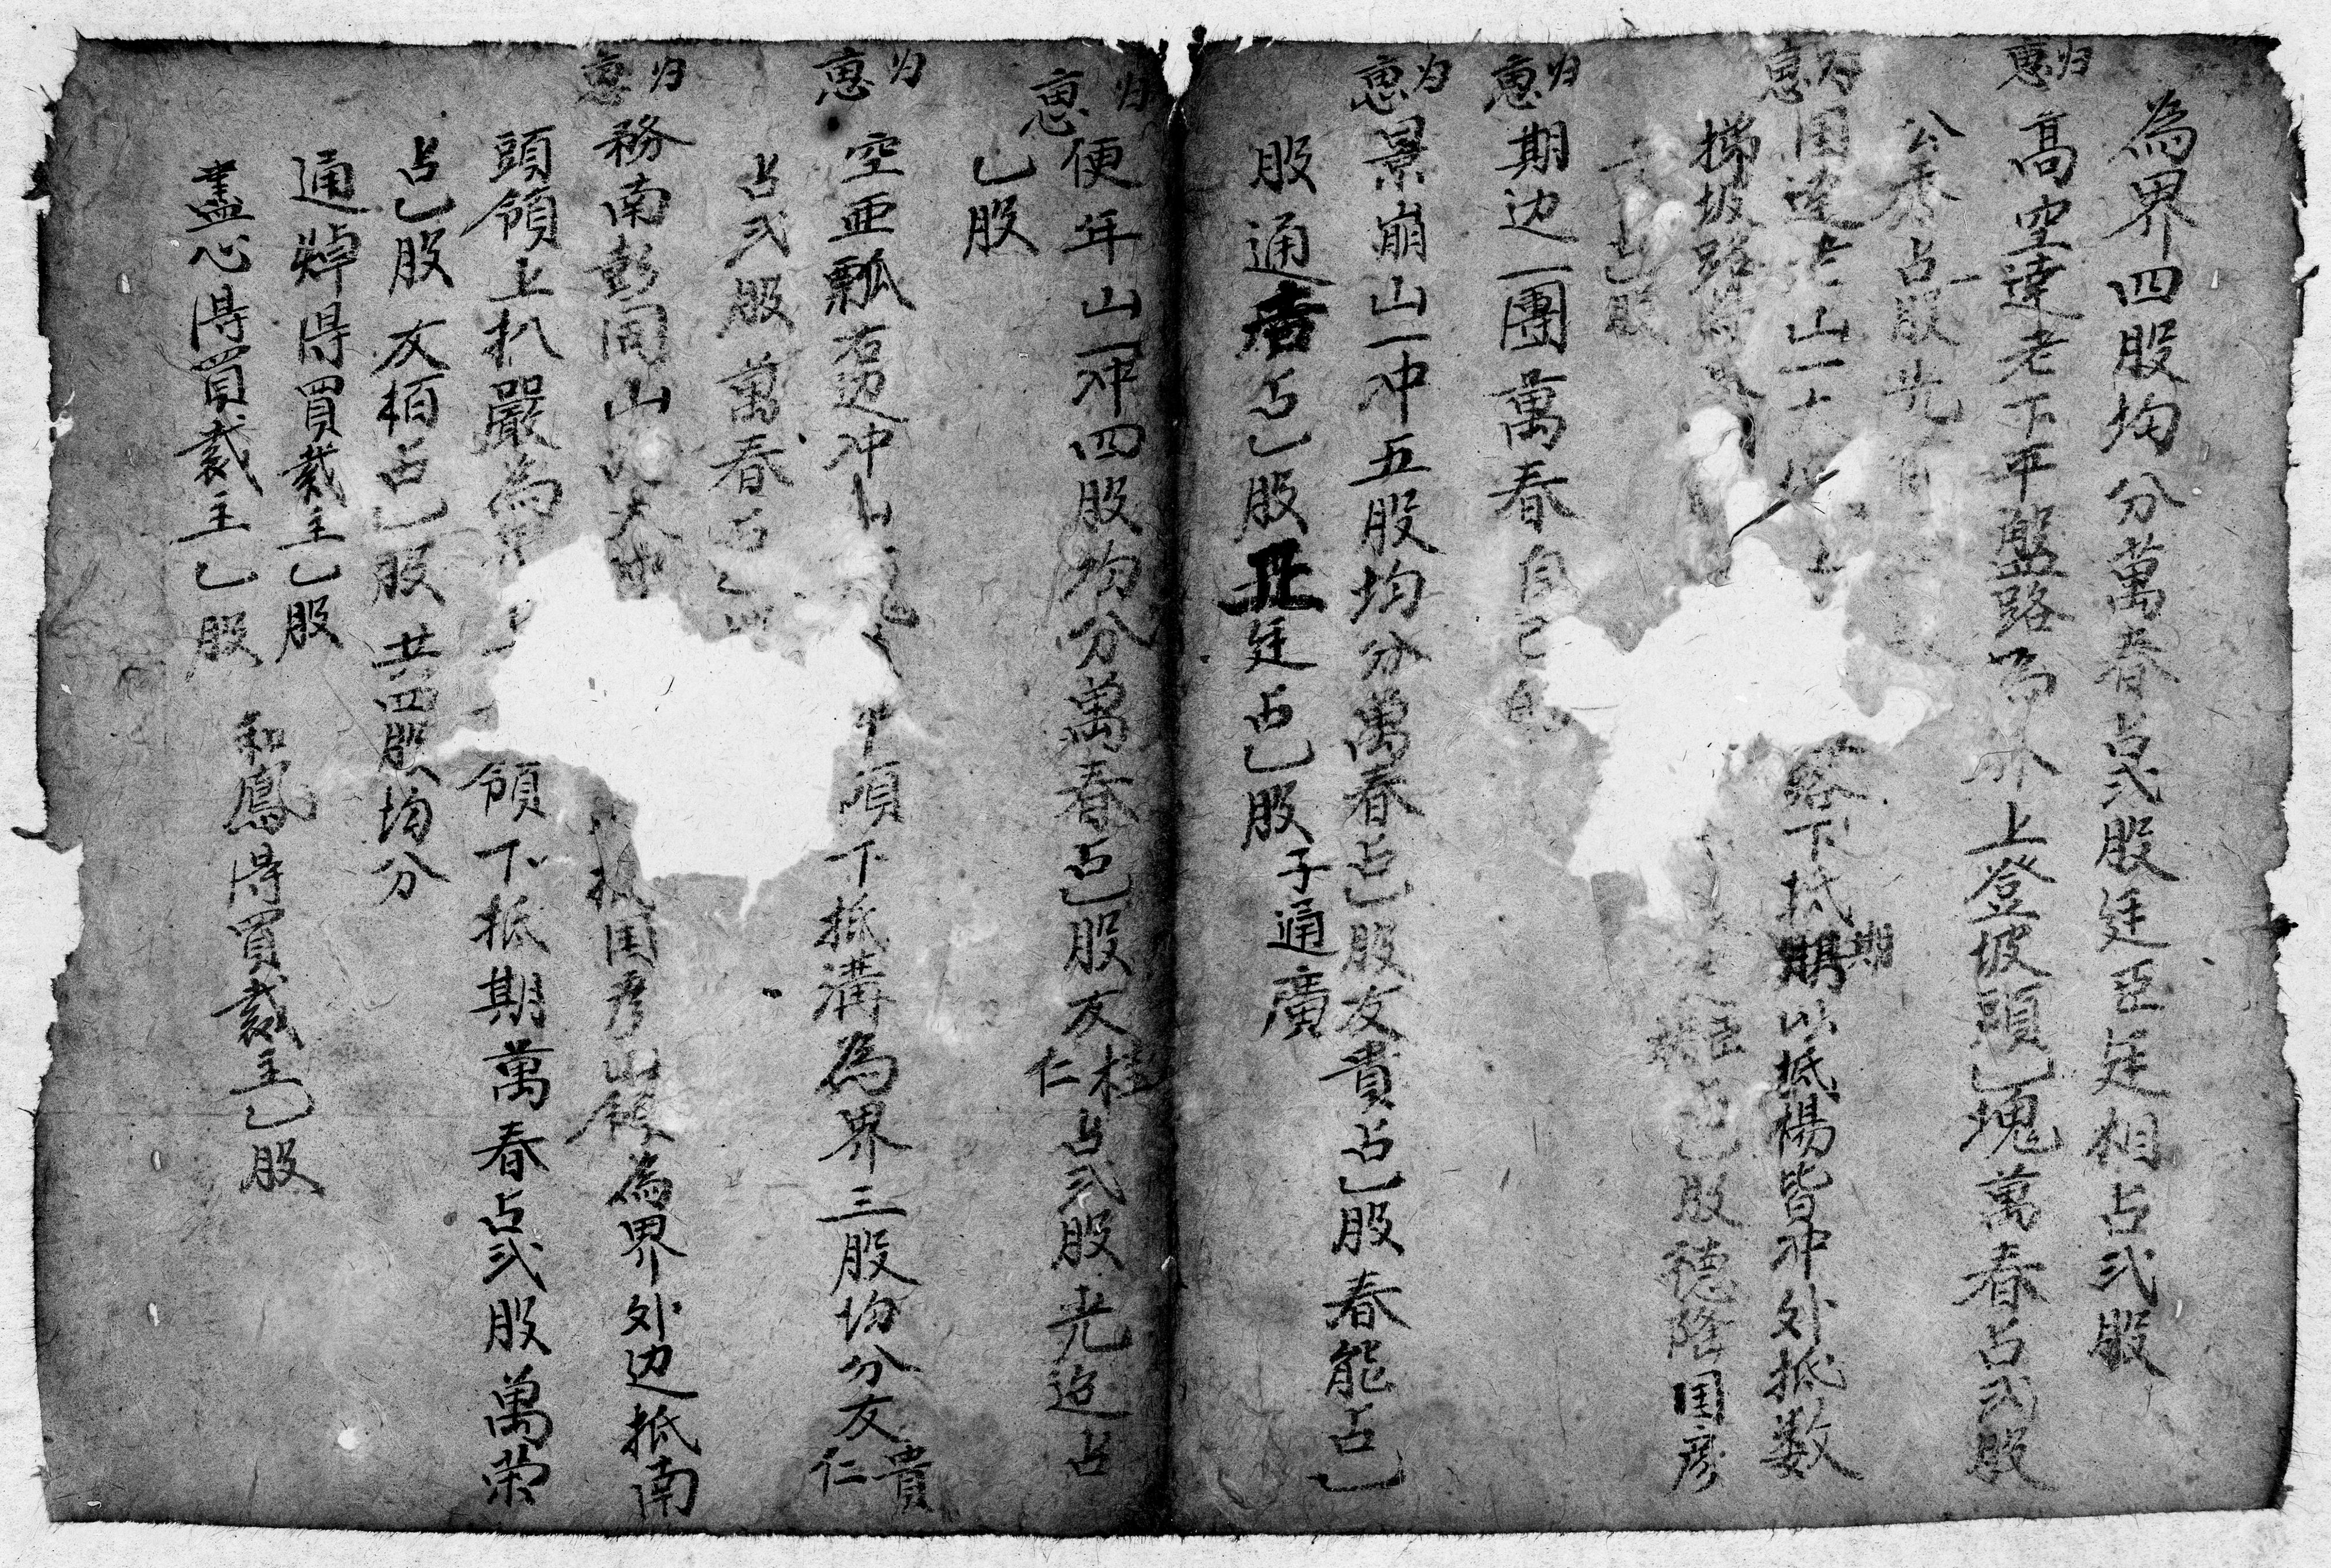 為界四股均分萬春占弍股廷臣廷相占弍股
归惠 高空達老下平盤路為界上登坡頭乚塊萬春占弍股
公秀占一股先
归惠 国達老山一大 路下抵期山抵楊皆冲外抵数
梯坡路 臣占乚股德隆国彦
占乚股
归惠 期边一團萬春自己
归惠 景崩山一冲五股均分萬春占乚股友貴占乚股春能占乚
股通廣占乚股丑廷占乚股子通廣
归惠 便年山一冲四股均分萬春占乚股友桂仁占弍股光迨占
乚股
归惠 空亜瓢右边冲 下抵溝為界三股均分友貴仁
占弍股萬春占乚股
归惠 務南彭同山 大冲 抵国彦山領為界外边抵南
頭領上扒嚴為界上 領下抵期萬春占弍股萬荣
占乚股友栢占乚股共四股均分
通焯得買裁主乚股
盡心得買裁主乚股 和鳳得買裁主乚股